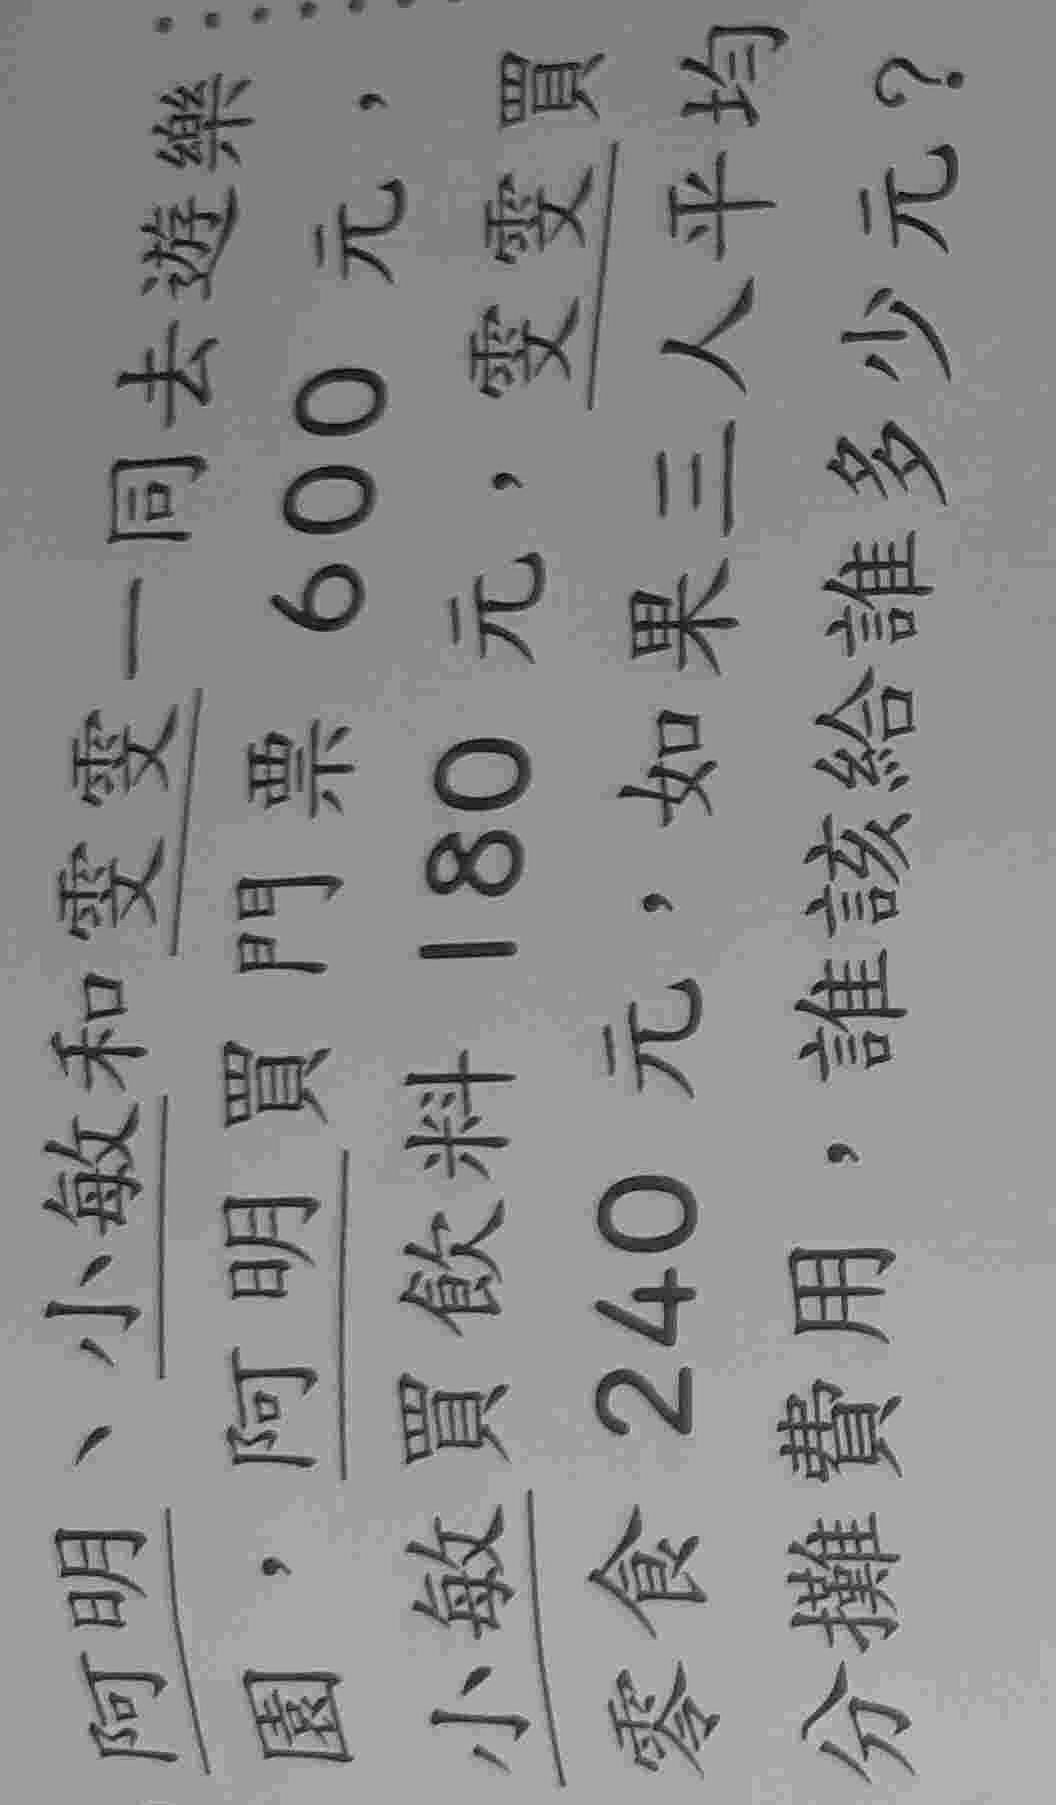 阿明、小敏和雯雯一同去遊樂
園，阿明買門票 600 元，
小敏買飲料 180 元，雯雯買
零食 240 元，如果三人平均
分攤費用，誰該給誰多少元？